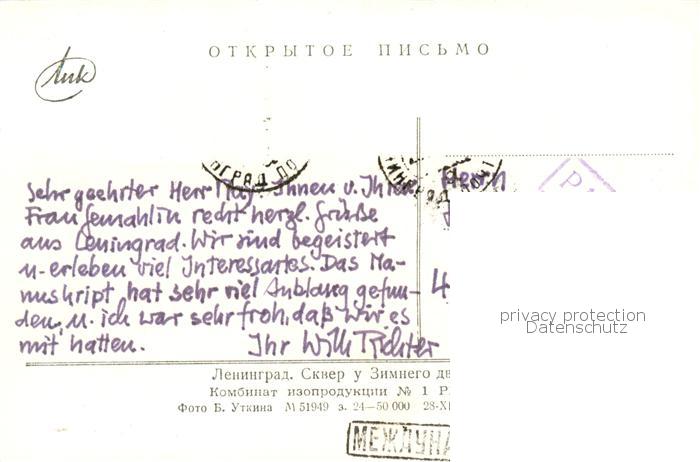 ОТКРЫТОЕ ПИСЬМО
Sehr geehrter Herr May. Ihnen u. Ihrer
Frau Gemahlin recht herzl. Grüße
aus Leningrad. Wir sind begeistert
u. erleben viel Interessantes. Das Ma-
nuskript hat sehr viel Anklang gefun-
den, u. ich war sehr froh, daß wir es
mit hatten.
Ihr Willi Richter
Herrn
4
privacy protection
Datenschutz
Ленинград. Сквер у Зимнего дв
Комбинат изопродукции № 1 Р
Фото Б. Уткина М 51949 з. 24—50 000 28-XI
МЕЖДУНА